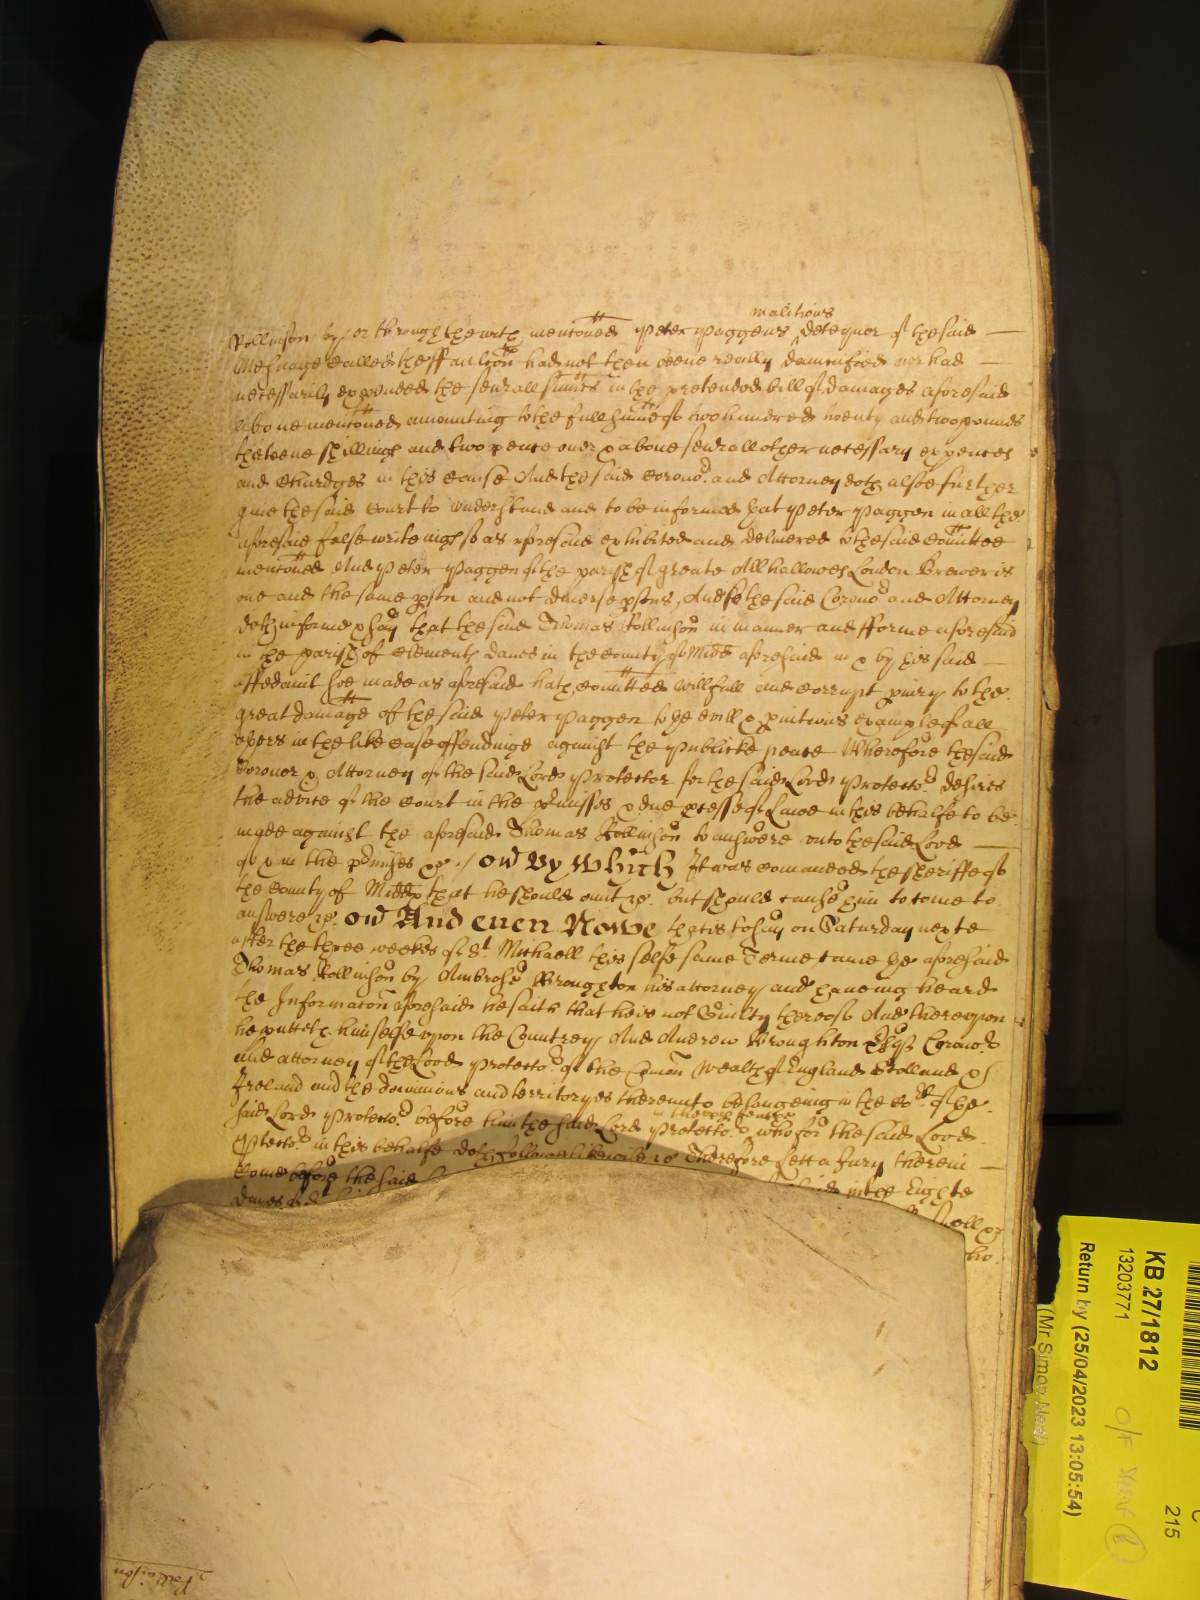 malitious
Rollinson by or through the with mentoned Peter Paggens deteynor of the said
Messuage called the ffaulcon had not then beene really damnified nor had
necessarily expended the severall summes in the pretended bill of damages aforesaid
above mentoned amounting to the full summe of two hundred twenty and two pounds
thirteene shillings and two pence over & above severall other necessary expences
and Chardges in this cause And the said Corono.r and Attorney doth alsoe further
give the said Court to understand and to be informed that Peter Paggen in all the
aforesaid false writeings so as aforesaid exhibited and delivered to the said Comittee
mentoned And Peter Paggen of the parish of greate Allhallowes London Brewer is
one and the same pson and not diverse psons, And so the said Corono.r and Attorney
doth informe & say that the said Thomas Rollinson in manner and fforme aforesaid
in the parish of Clements danes in the County of Midd aforesaid in & by his said
affedavit soe made as aforesaid hath comitted willfull and corrupt piury to the
great damage of the said Peter Paggen to the evill & pnitious example of all
others in the like case offendinge against the publicke peace Wherefore the said
Coroner & Attorney of the said Lord Protector for the said Lord Protecto.r desires
the advice of the Court in the pmisses & due pcesse of Lawe in this behalfe to be
made against the aforesaid Thomas Rollinson to answere unto the said Lord
of & in the pmisses &c. / By which It was comanded the sheriffe of
the County of Midd that he should omit &c. but should cause him to come to
answere &c. And even Nowe that is to say on Saturday nexte
after the three weekes of St. Michaell this selfe same Terme came the aforesaid
Thomas Rollinson by Ambrose Broughton his attorney and haveing heard
the Informaton aforesaid he saith that he is not Guilty thereof And thereupon
he putteth himselfe upon the Countrey And Andrew Broughton Esq Corono.r
and attorney of the Lord Protecto.r of the Comon Wealth of England Scotland &
Ireland and the dominions and territoryes thereunto belongeing in the Co.rt of the
in the upper bench
said Lord Protecto.r before him the said Lord Protecto.r who for the said Lord
Protecto.r in this behalfe doth followe likewise &c Therefore lett a Jury therein
Come before the said in the Eighte
dayes of
KB 27/1812
13203771
Return by (25/04/2023 13:05:54)
215
Rollinson